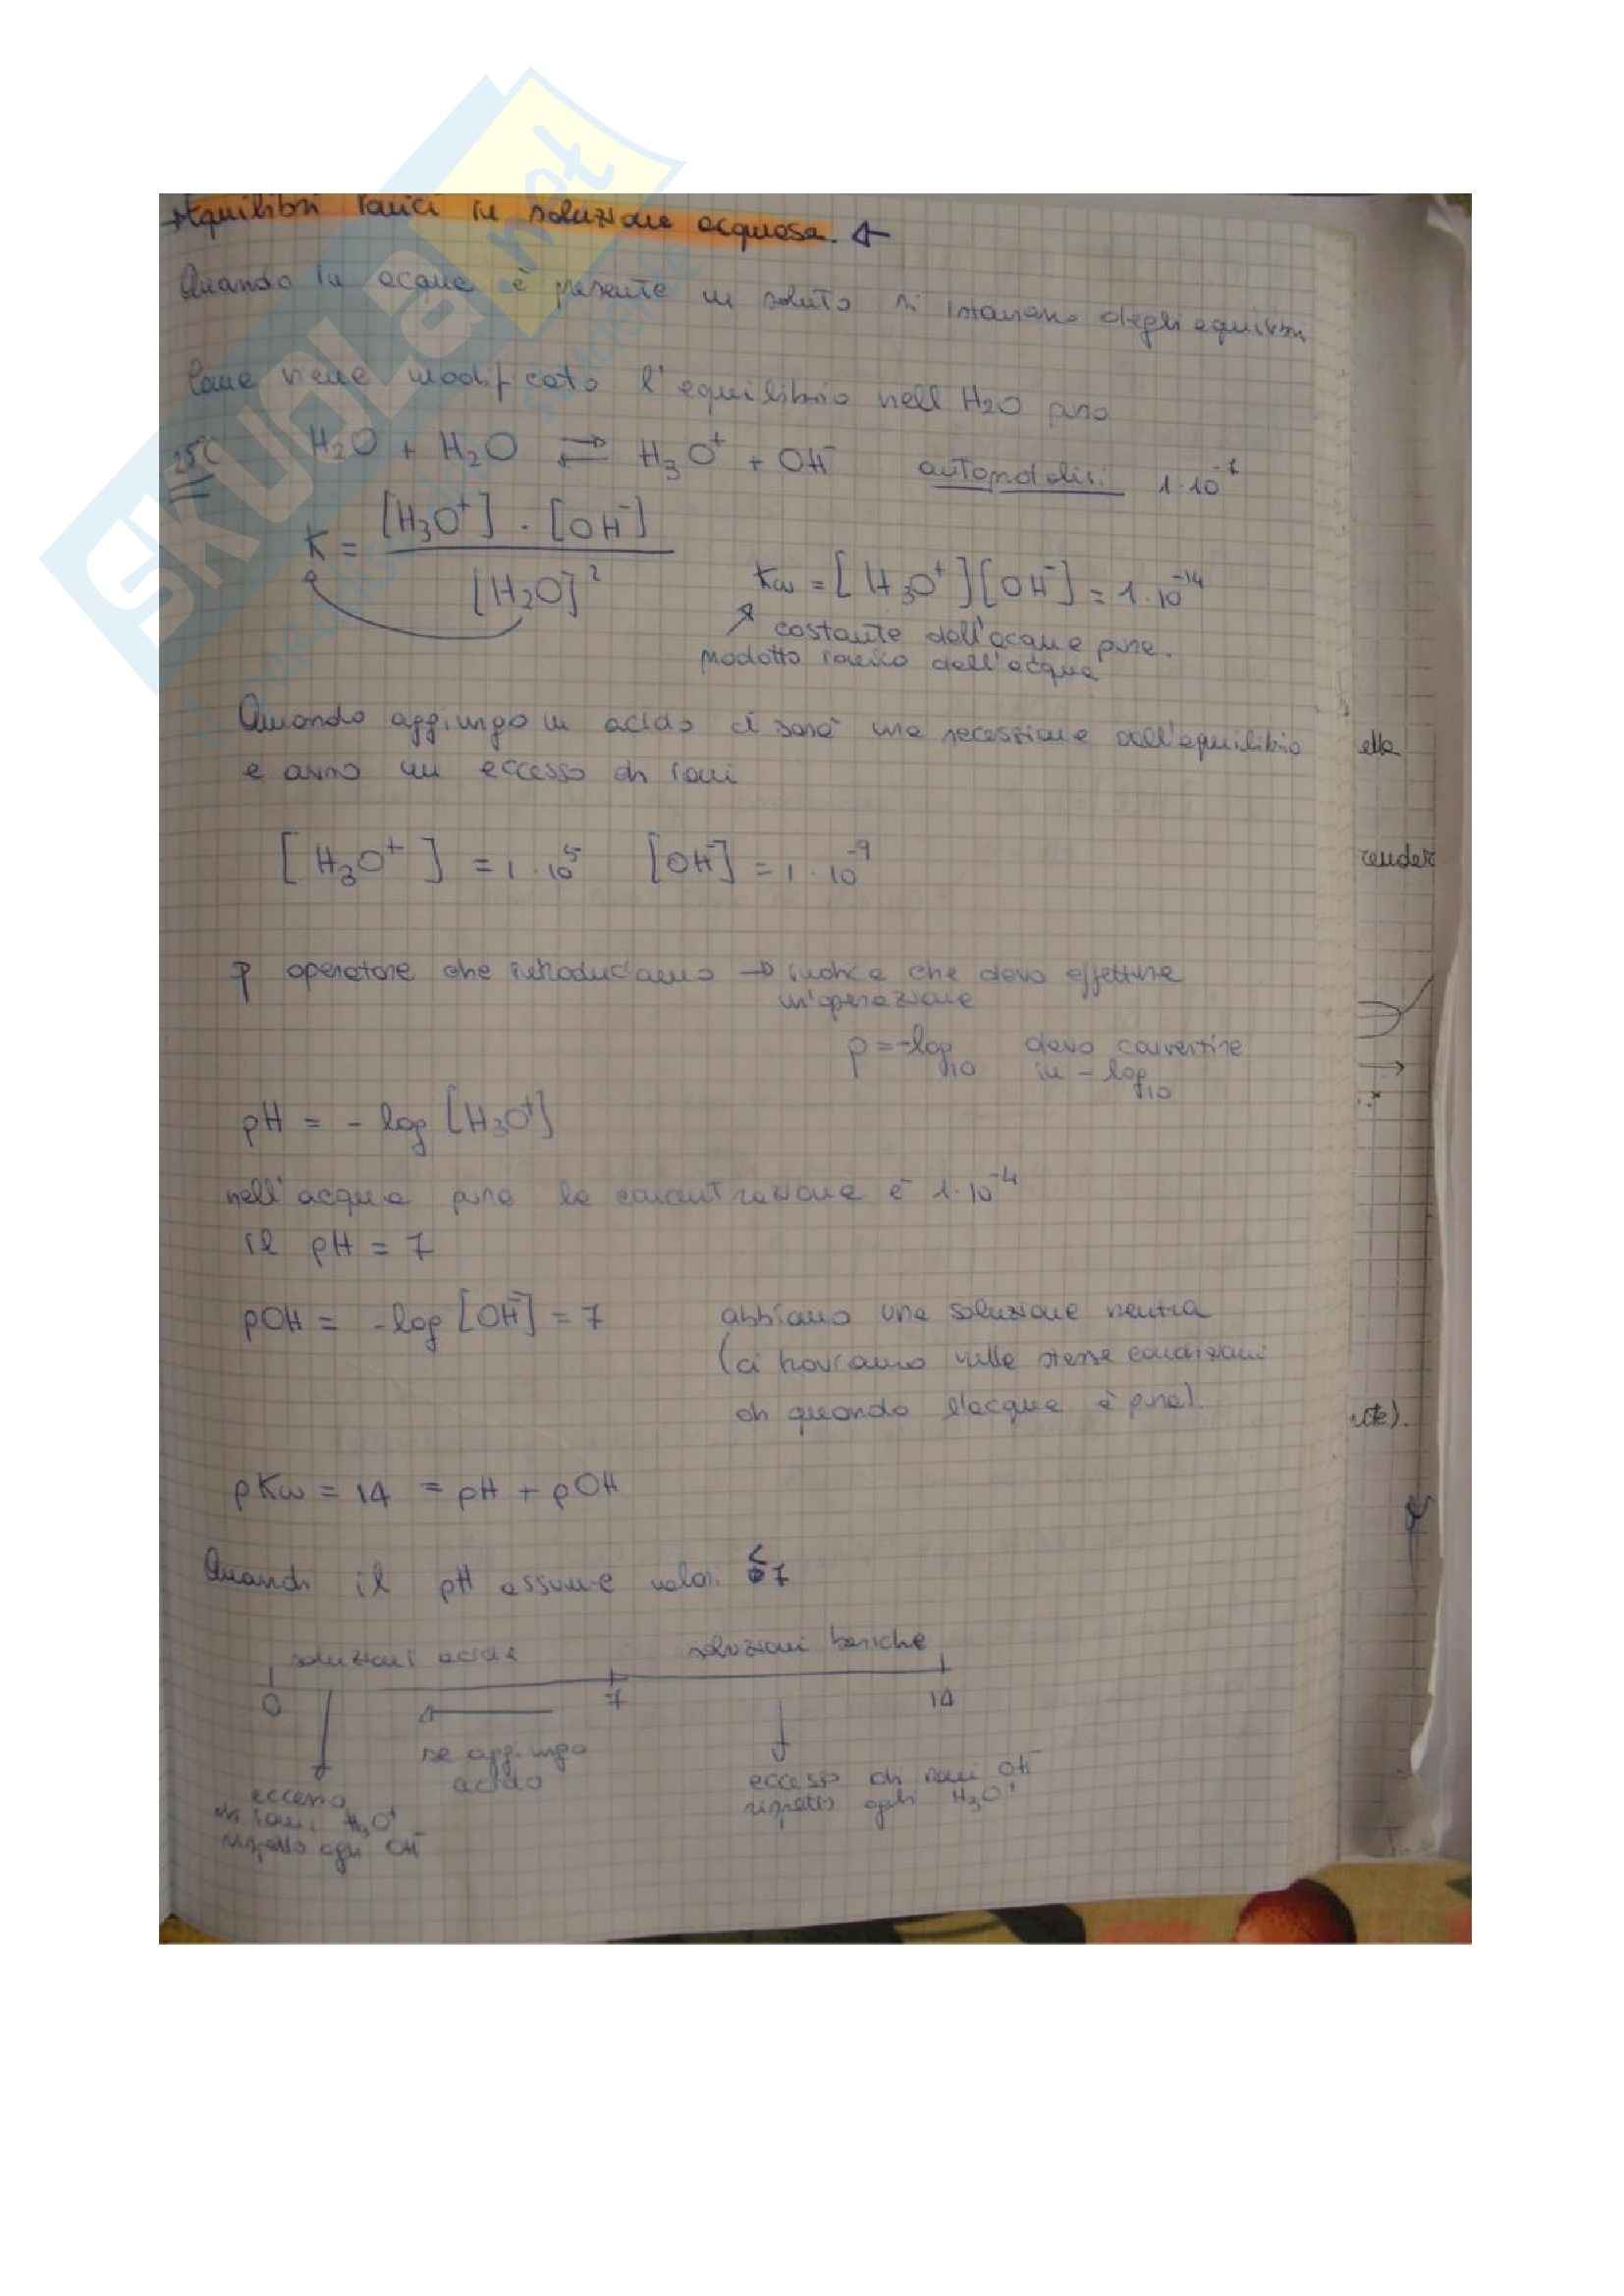 Equilibri ionici in soluzione acquosa.
Quando in acqua è presente un soluto si instaurano degli equilibri
Come viene modificato l'equilibrio nell H2O pura
25C H2O + H2O ⇌ H3O+ + OH- autoprotolisi 1·10^-7
K = [H3O+] · [OH-]
[H2O]^2
Kw = [H3O+][OH-] = 1·10^-14
costante dell'acqua pura.
prodotto ionico dell'acqua
Quando aggiungo un acido ci sarà una dell'equilibrio
e avrò un eccesso di ioni
[H3O+] = 1·10^5 [OH-] = 1·10^-9
p operatore che introduciamo → indica che devo effettuare
un'operazione
p = -log10 devo convertire
in -log10
pH = - log [H3O+]
nell'acqua pura la concentrazione è 1·10^-4
il pH = 7
pOH = -log [OH-] = 7 abbiamo una soluzione neutra
(ci troviamo nelle stesse condizioni
di quando l'acqua è pura).
pKw = 14 = pH + pOH
Quando il pH assume valori < 7
soluzioni acide soluzioni basiche
0 7 14
se aggiungo
acido
eccesso
di ioni H3O+
rispetto agli OH-
eccesso di ioni OH-
rispetto agli H3O+
ella
render
SKUOLA.net